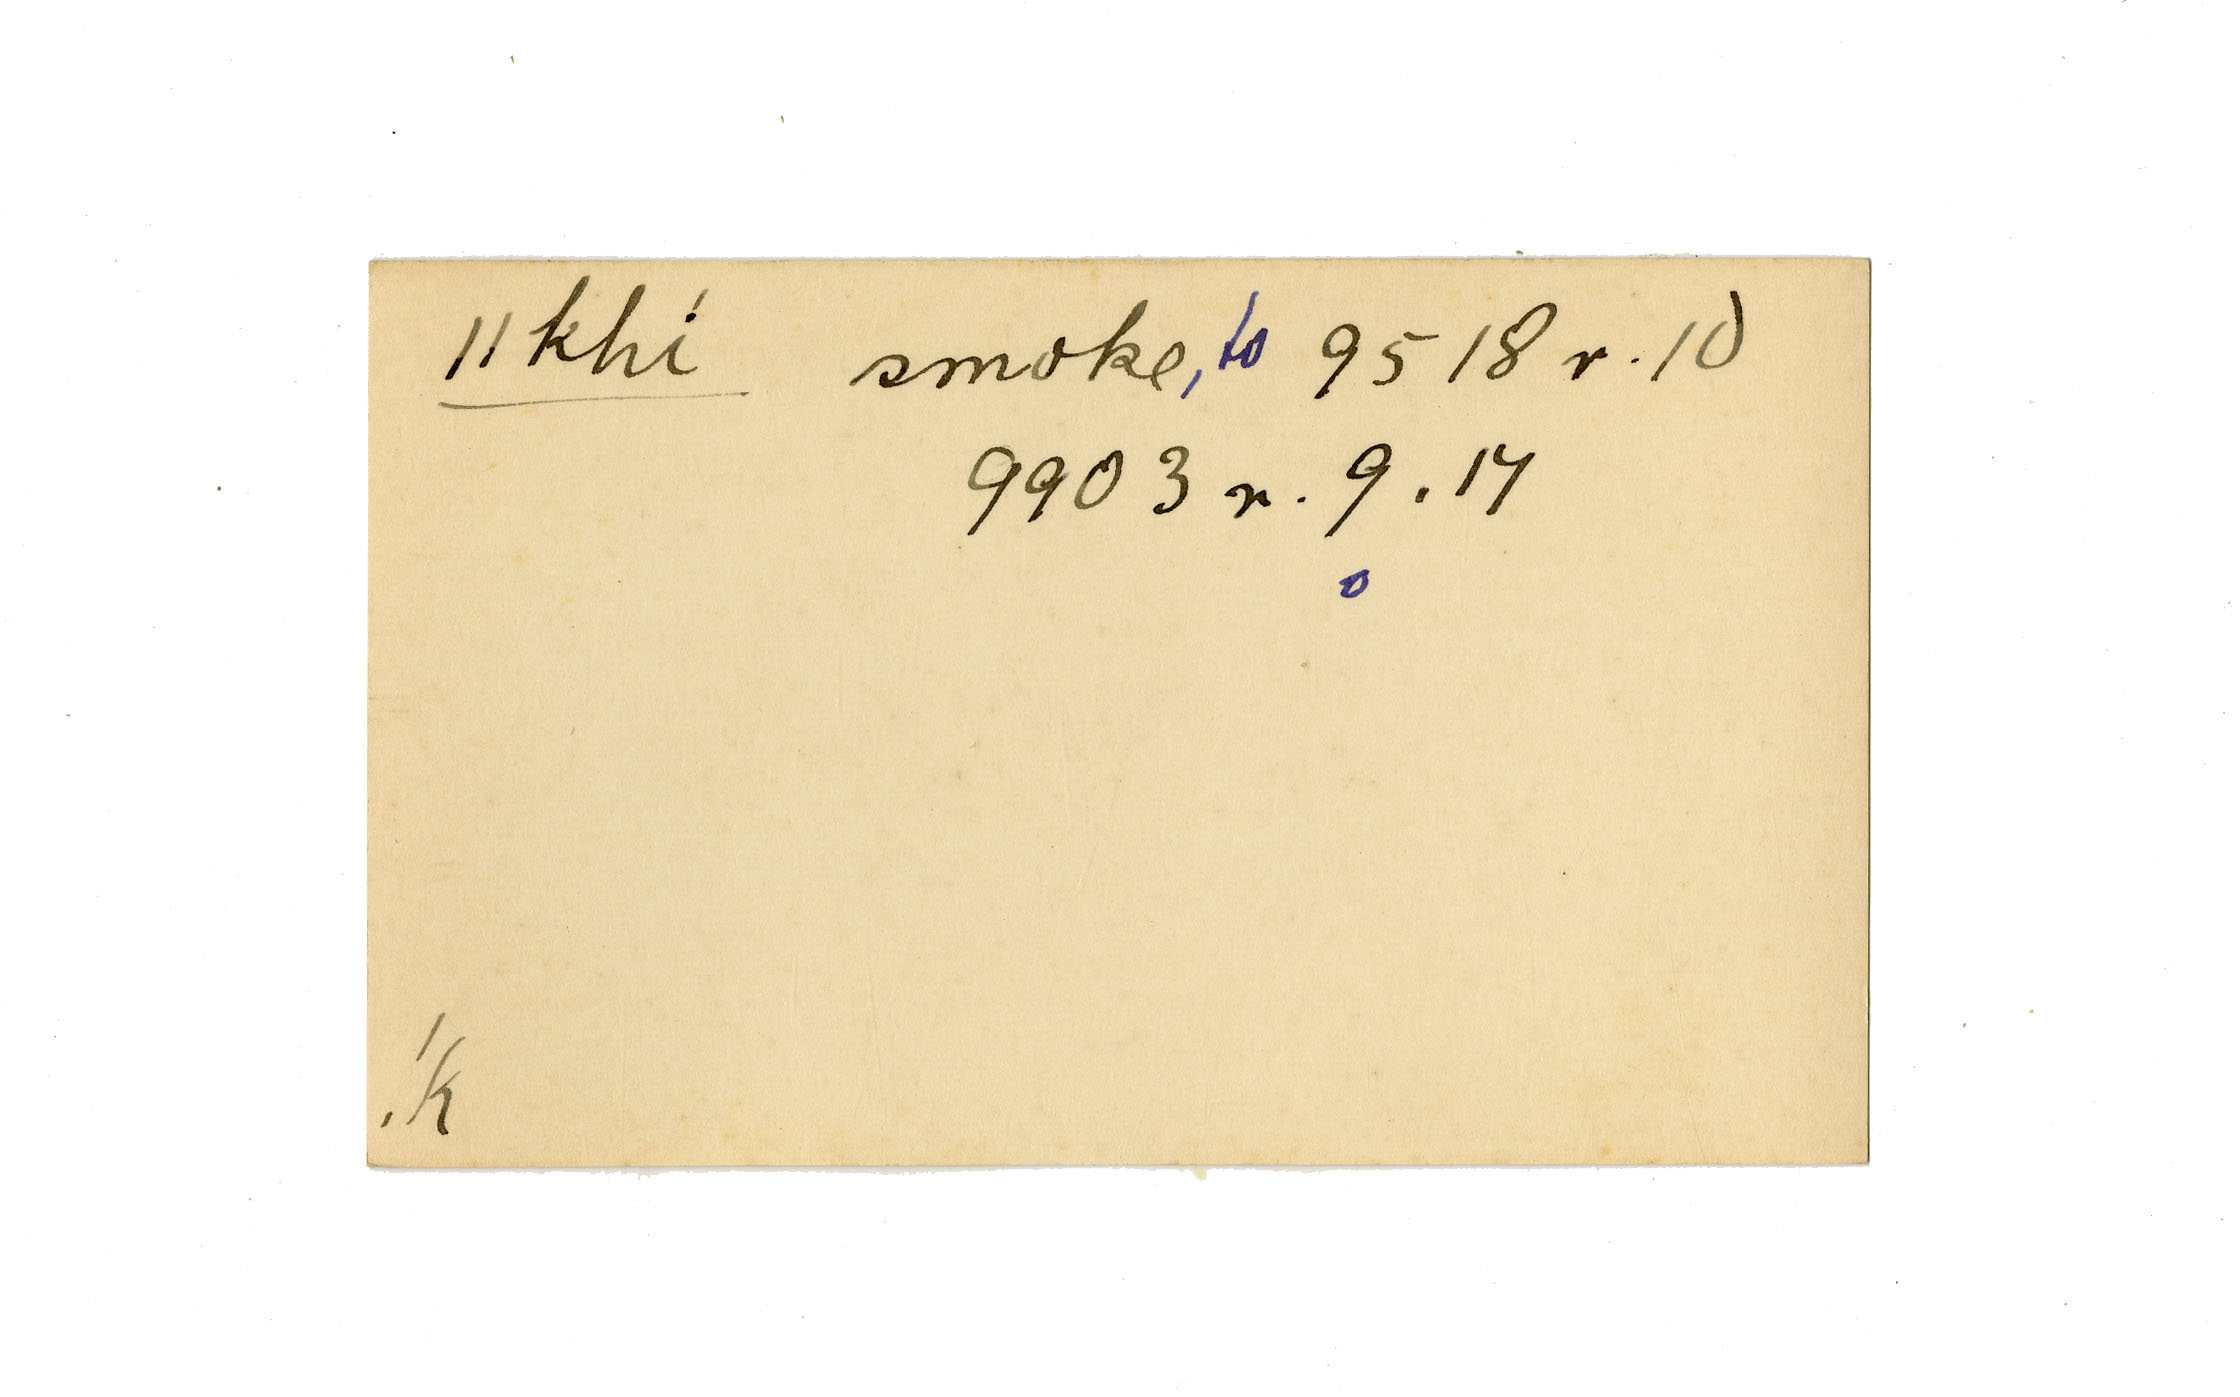 ǁkhí smoke, to 9518 r. 10
9903 r. 9. 17
o
!k